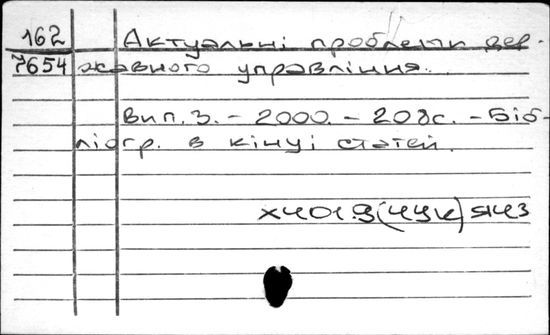 162
7654
Актуальні проблеми дер-
жавного управління.
Вип.3. - 2000. - 208с. - Біб-
ліогр. в кінці статей.
х401.9(4Ук)я43